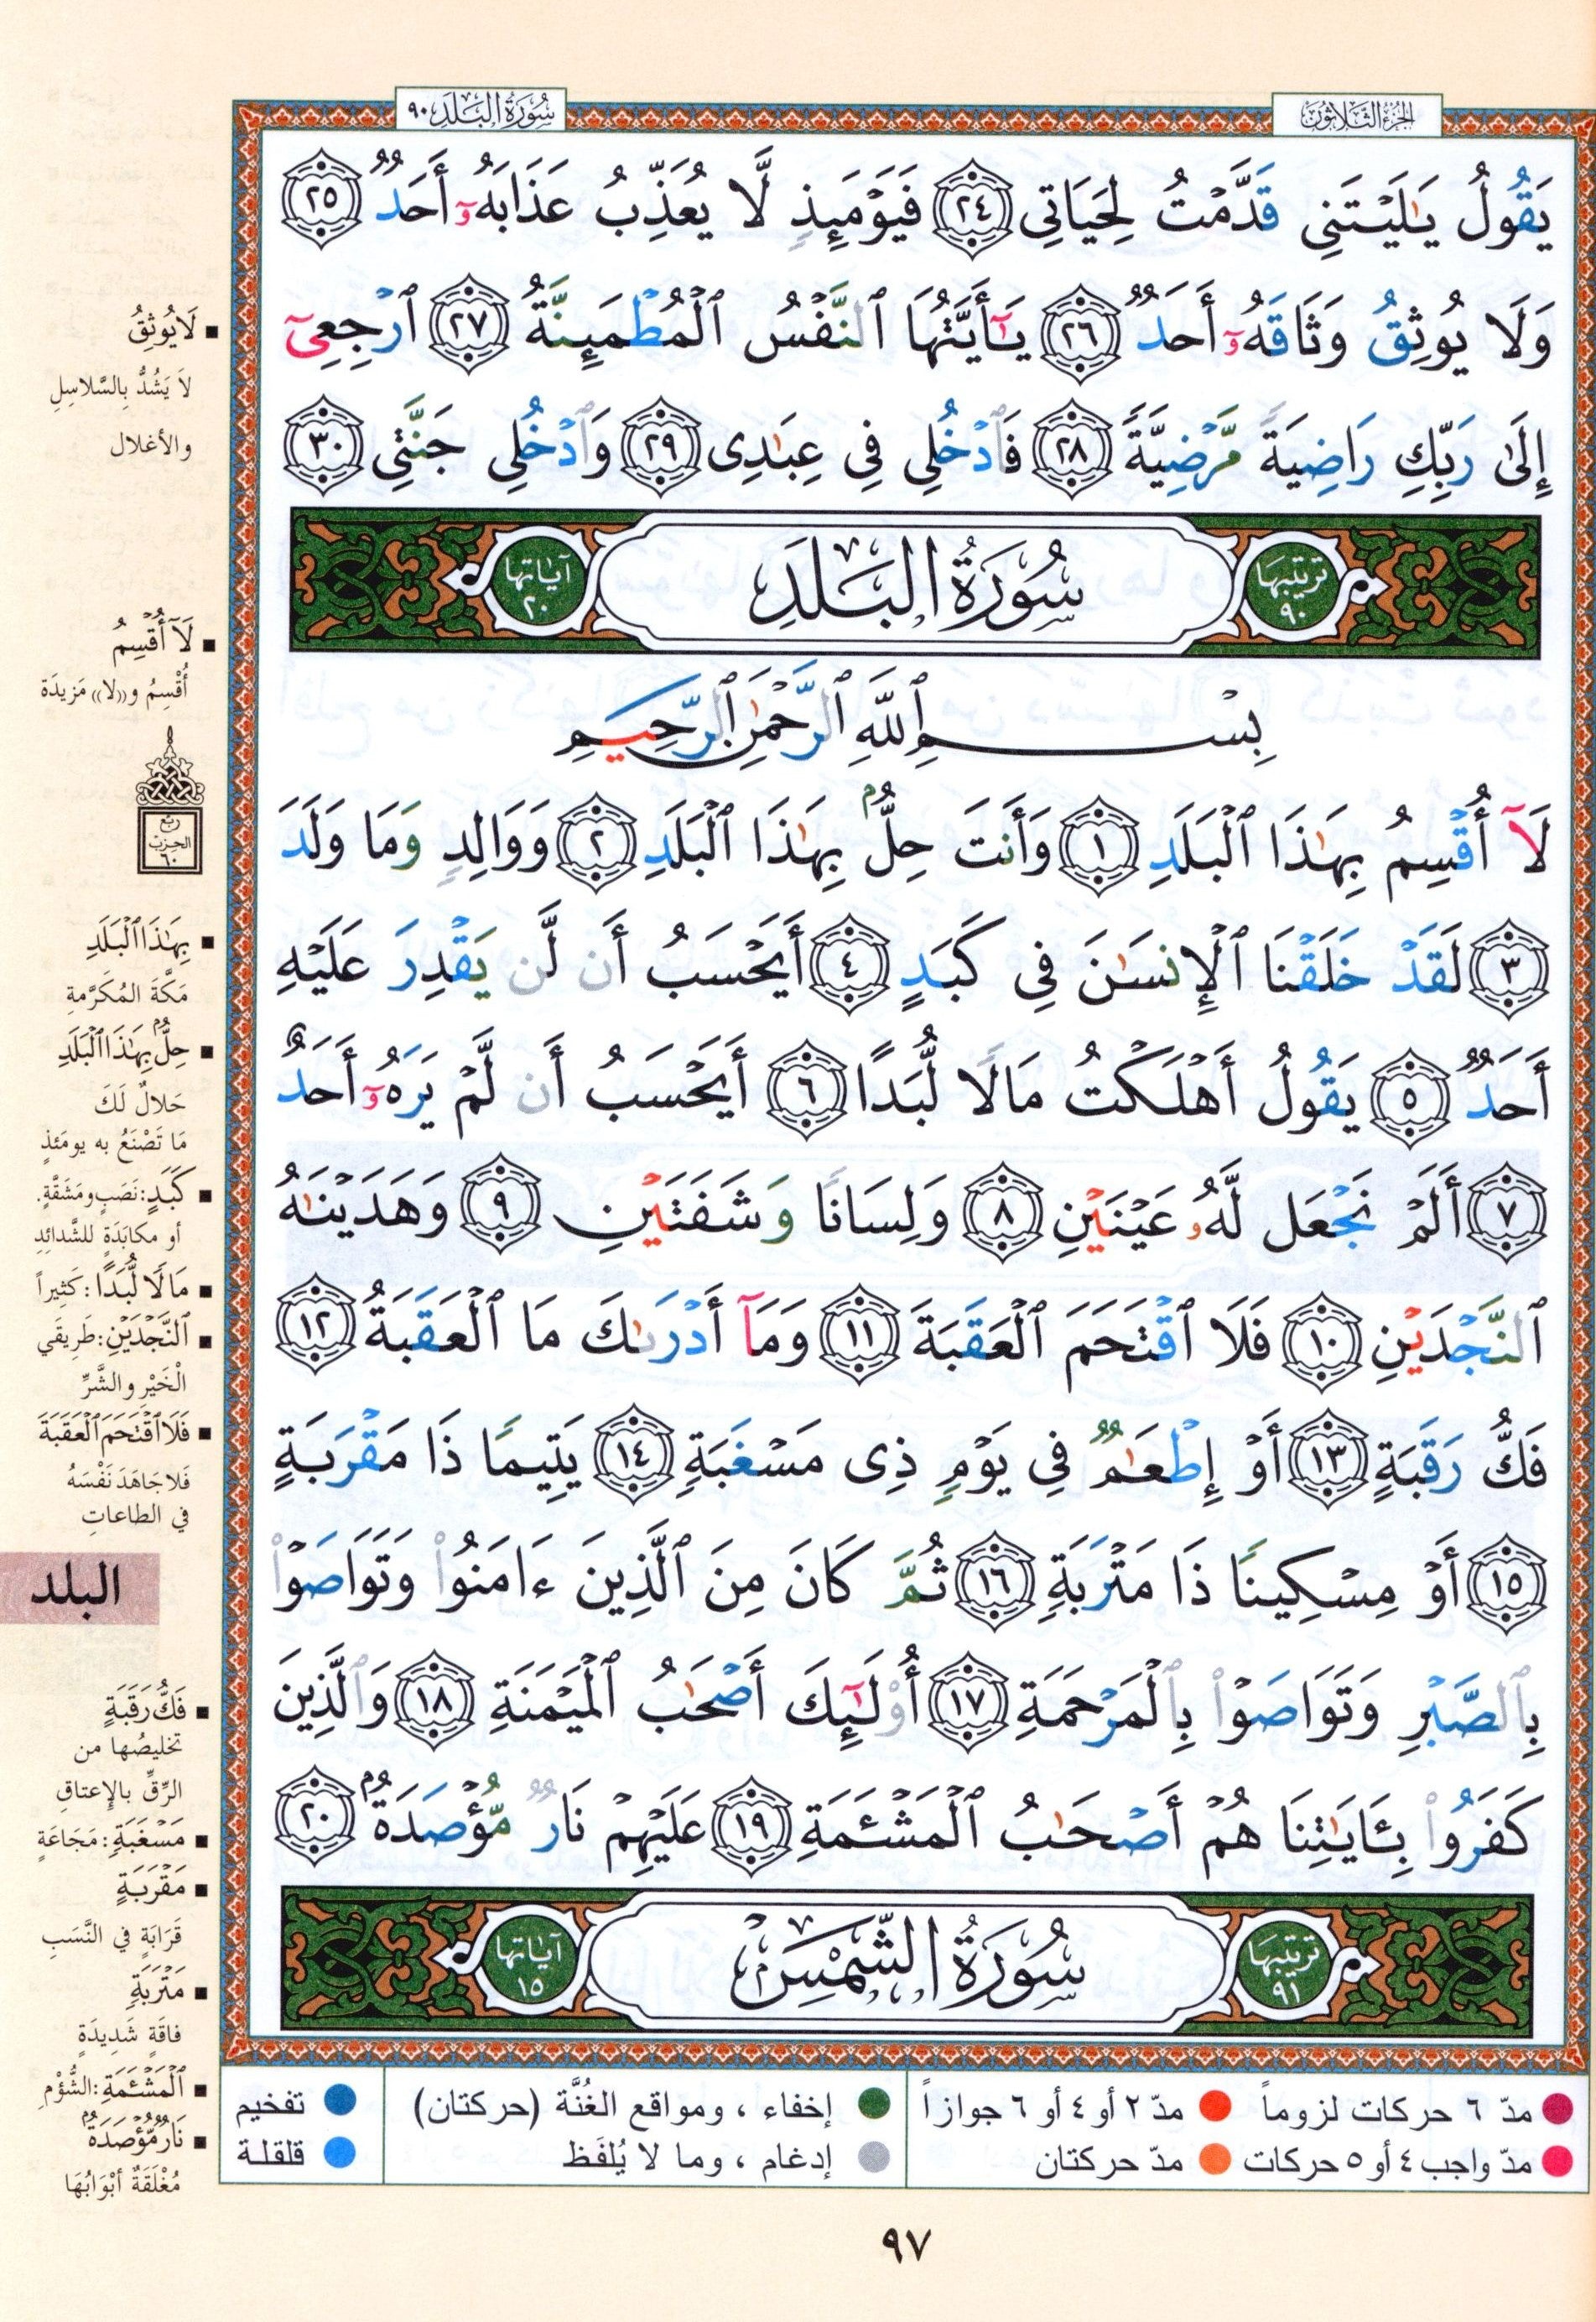 الجزء الثلاثون
سورة البلد ٩٠
يَقُولُ يَٰلَيْتَنِى قَدَّمْتُ لِحَيَاتِى ٢٤ فَيَوْمَئِذٍ لَّا يُعَذِّبُ عَذَابَهُۥٓ أَحَدٌ ٢٥
وَلَا يُوثِقُ وَثَاقَهُۥٓ أَحَدٌ ٢٦ يَٰٓأَيَّتُهَا ٱلنَّفْسُ ٱلْمُطْمَئِنَّةُ ٢٧ ٱرْجِعِىٓ
إِلَىٰ رَبِّكِ رَاضِيَةً مَّرْضِيَّةً ٢٨ فَٱدْخُلِى فِى عِبَٰدِى ٢٩ وَٱدْخُلِى جَنَّتِى ٣٠
ترتيبها ٩٠ سُورَةُ البَلَدِ آياتها ٢٠
بِسْمِ ٱللَّهِ ٱلرَّحْمَٰنِ ٱلرَّحِيمِ
لَآ أُقْسِمُ بِهَٰذَا ٱلْبَلَدِ ١ وَأَنتَ حِلٌّۢ بِهَٰذَا ٱلْبَلَدِ ٢ وَوَالِدٍ وَمَا وَلَدَ
٣ لَقَدْ خَلَقْنَا ٱلْإِنسَٰنَ فِى كَبَدٍ ٤ أَيَحْسَبُ أَن لَّن يَقْدِرَ عَلَيْهِ
أَحَدٌ ٥ يَقُولُ أَهْلَكْتُ مَالًا لُّبَدًا ٦ أَيَحْسَبُ أَن لَّمْ يَرَهُۥٓ أَحَدٌ
٧ أَلَمْ نَجْعَل لَّهُۥ عَيْنَيْنِ ٨ وَلِسَانًا وَشَفَتَيْنِ ٩ وَهَدَيْنَٰهُ
ٱلنَّجْدَيْنِ ١٠ فَلَا ٱقْتَحَمَ ٱلْعَقَبَةَ ١١ وَمَآ أَدْرَىٰكَ مَا ٱلْعَقَبَةُ ١٢
فَكُّ رَقَبَةٍ ١٣ أَوْ إِطْعَٰمٌ فِى يَوْمٍ ذِى مَسْغَبَةٍ ١٤ يَتِيمًا ذَا مَقْرَبَةٍ
١٥ أَوْ مِسْكِينًا ذَا مَتْرَبَةٍ ١٦ ثُمَّ كَانَ مِنَ ٱلَّذِينَ ءَامَنُوا۟ وَتَوَاصَوْا۟
بِٱلصَّبْرِ وَتَوَاصَوْا۟ بِٱلْمَرْحَمَةِ ١٧ أُو۟لَٰٓئِكَ أَصْحَٰبُ ٱلْمَيْمَنَةِ ١٨ وَٱلَّذِينَ
كَفَرُوا۟ بِـَٔايَٰتِنَا هُمْ أَصْحَٰبُ ٱلْمَشْـَٔمَةِ ١٩ عَلَيْهِمْ نَارٌ مُّؤْصَدَةٌۢ ٢٠
ترتيبها ٩١ سُورَةُ الشَّمْسِ آياتها ١٥
لَا يُوثِقُ
لاَ يَشُدُّ بِالسَّلاسِلِ
والأغلال
لَآ أُقْسِمُ
أُقْسِمُ و«لا» مَزيدَة
ربع
الحزب
٦٠
بِهَٰذَا ٱلْبَلَدِ
مَكَّةَ المُكَرَّمةِ
حِلٌّۢ بِهَٰذَا ٱلْبَلَدِ
حَلالٌ لَكَ
مَا تَصْنَعُ به يومَئذٍ
كَبَدٍ: نَصَبٍ ومَشَقَّةٍ.
أو مكابَدَةٍ للشَّدائِدِ
مَالًا لُّبَدًا: كَثِيراً
ٱلنَّجْدَيْنِ: طَرِيقَي
الْخَيْرِ والشَّرِّ
فَلَا ٱقْتَحَمَ ٱلْعَقَبَةَ
فَلا جَاهَدَ نَفْسَهُ
في الطاعاتِ
البلد
فَكُّ رَقَبَةٍ
تخليصُها من
الرِّقِّ بالإعتاقِ
مَسْغَبَةٍ: مَجَاعَةٍ
مَقْرَبَةٍ
قَرَابَةٍ في النَّسَبِ
مَتْرَبَةٍ
فاقَةٍ شَدِيدَةٍ
ٱلْمَشْـَٔمَةِ: الشُّؤْمِ
نَارٌ مُّؤْصَدَةٌۢ
مُغْلَقَةٌ أبْوَابُهَا
مدّ ٦ حركات لزوماً مدّ ٢ أو ٤ أو ٦ جوازاً إخفاء ، ومواقع الغُنَّة (حركتان) تفخيم
مدّ واجب ٤ أو ٥ حركات مدّ حركتان إدغام ، وما لا يُلفَظ قلقلة
٩٧